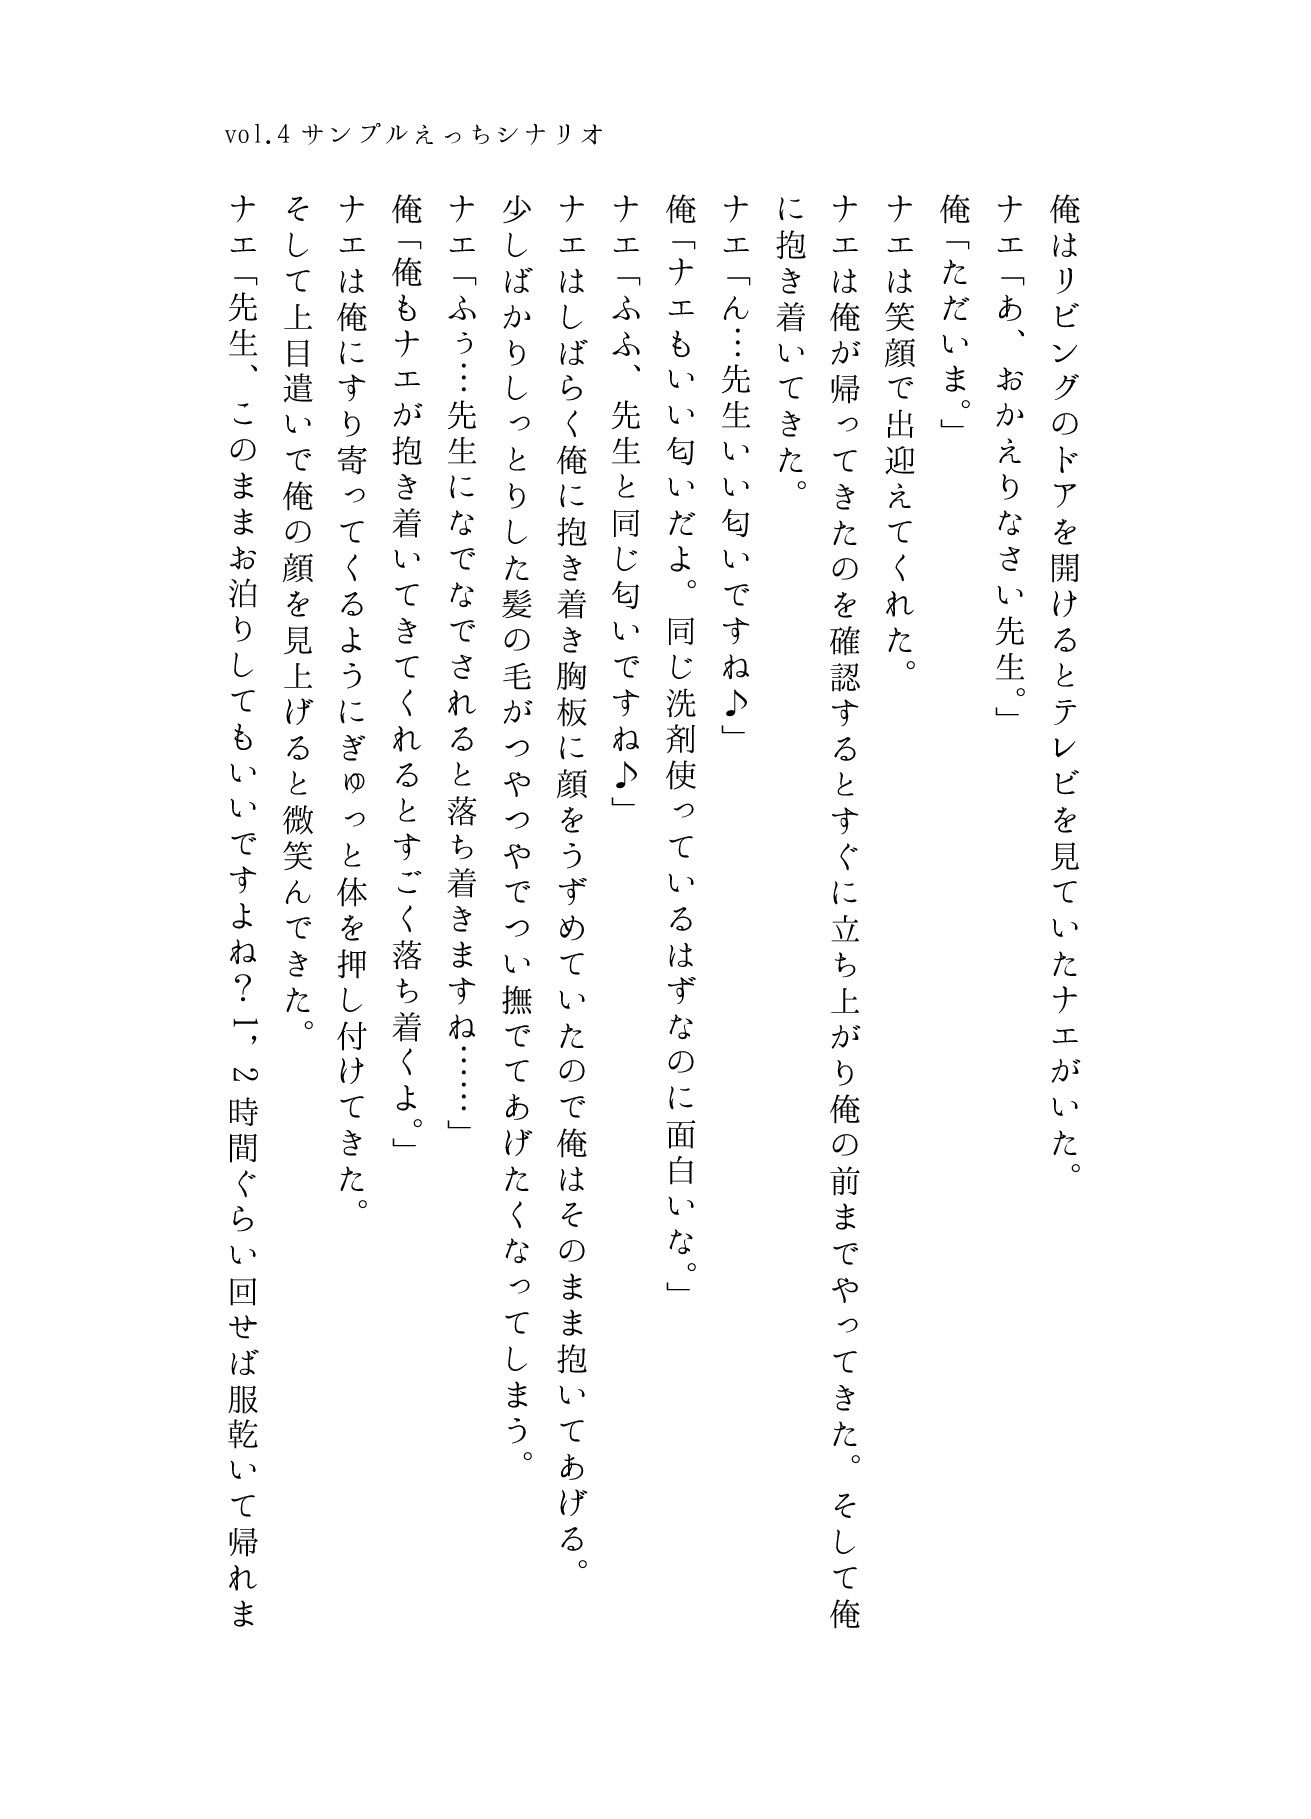 vol.4 サンプルえっちシナリオ
俺はリビングのドアを開けるとテレビを見ていたナエがいた。
ナエ「あ、おかえりなさい先生。」
俺「ただいま。」
ナエは笑顔で出迎えてくれた。
ナエは俺が帰ってきたのを確認するとすぐに立ち上がり俺の前までやってきた。そして俺
に抱き着いてきた。
ナエ「ん…先生いい匂いですね♪」
俺「ナエもいい匂いだよ。同じ洗剤使っているはずなのに面白いな。」
ナエ「ふふ、先生と同じ匂いですね♪」
ナエはしばらく俺に抱き着き胸板に顔をうずめていたので俺はそのまま抱いてあげる。
少しばかりしっとりした髪の毛がつやつやでつい撫でてあげたくなってしまう。
ナエ「ふぅ…先生になでなでされると落ち着きますね……」
俺「俺もナエが抱き着いてきてくれるとすごく落ち着くよ。」
ナエは俺にすり寄ってくるようにぎゅっと体を押し付けてきた。
そして上目遣いで俺の顔を見上げると微笑んできた。
ナエ「先生、このままお泊りしてもいいですよね？1，2時間ぐらい回せば服乾いて帰れま